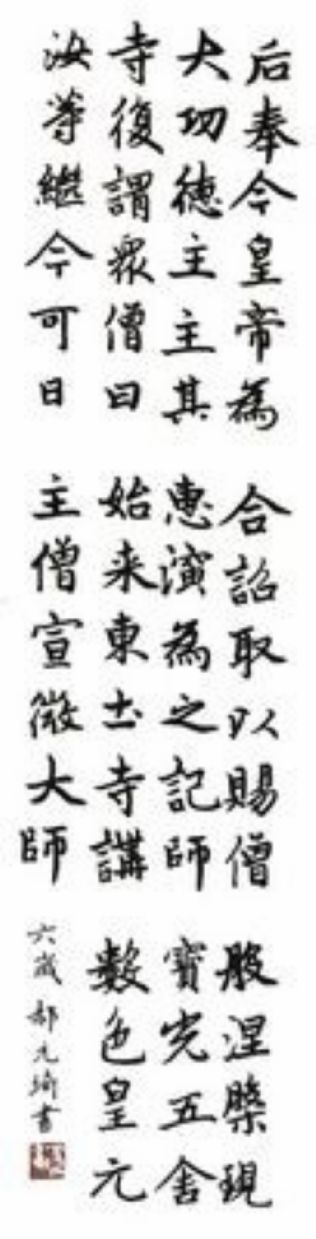 后奉今皇帝為
大功德主主其
寺復謂眾僧曰
汝等繼今可日
合詔取以賜僧
惠演為之記師
始来東土寺講
主僧宣微大師
般涅槃現
寶光五舍
數色皇元
六歲郝元琦書